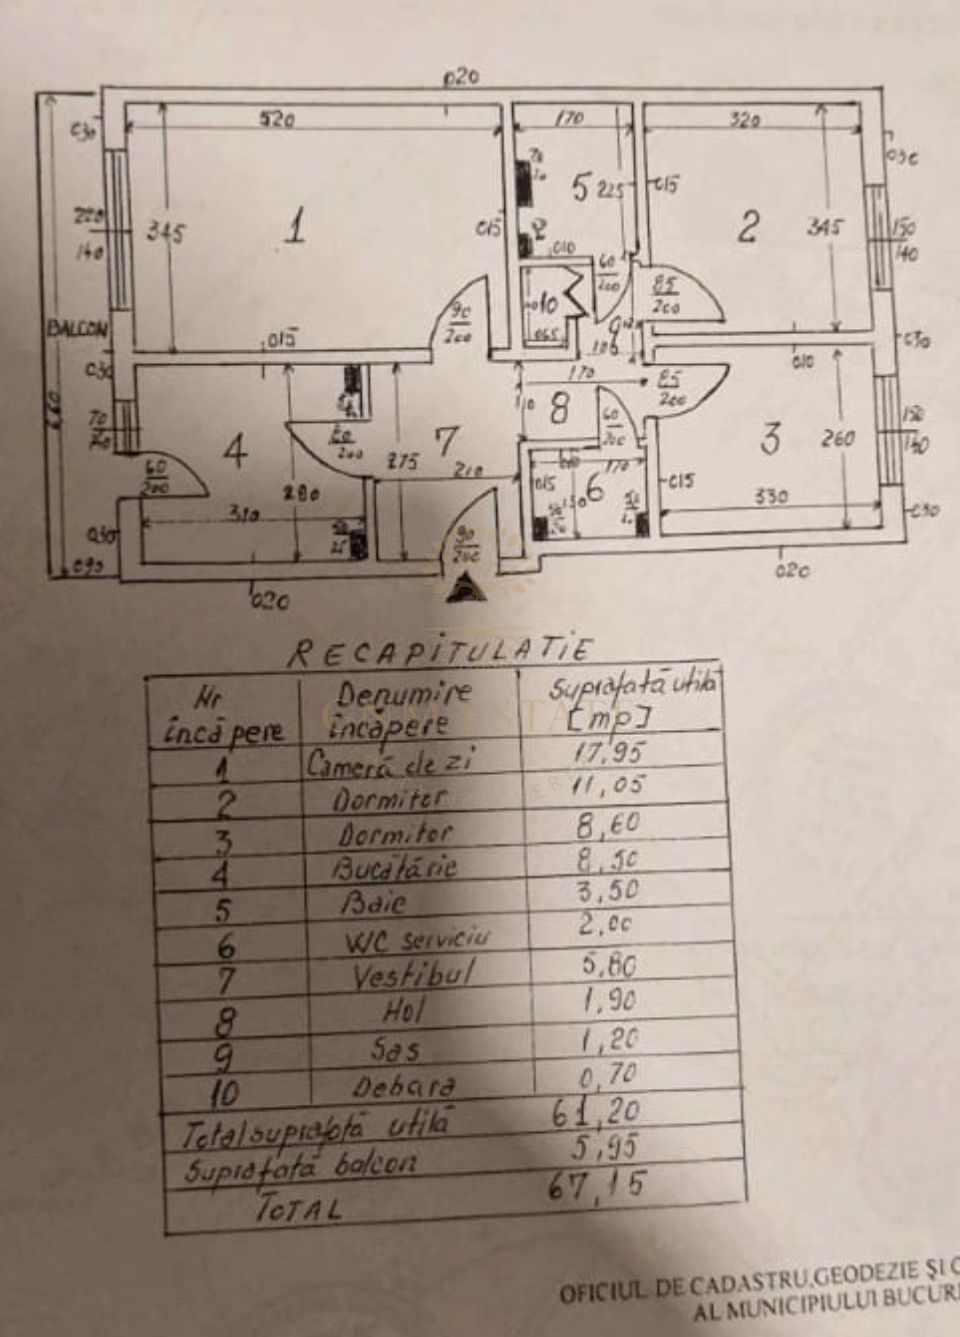 020
520
170
320
030
70
5
225
015
030
345
1
015
2
345
200
140
150
140
010
60
200
85
200
10
90
200
065
9
BALCON
015
030
010
030
170
85
200
110
8
60
200
70
4
7
3
260
275
210
170
60
200
280
015
6
015
330
310
030
90
200
030
020
020
RECAPITULATIE
Nr încăpere
Denumire încăpere
Suprafată utilă [mp]
1 Cameră de zi 17,95
2 Dormitor 11,05
3 Dormitor 8,60
4 Bucătărie 8,50
5 Baie 3,50
6 WC serviciu 2,00
7 Vestibul 5,80
8 Hol 1,90
9 Sas 1,20
10 Debara 0,70
Total suprafată utilă 61,20
Suprafată balcon 5,95
TOTAL 67,15
OFICIUL DE CADASTRU,GEODEZIE ŞI
AL MUNICIPIULUI